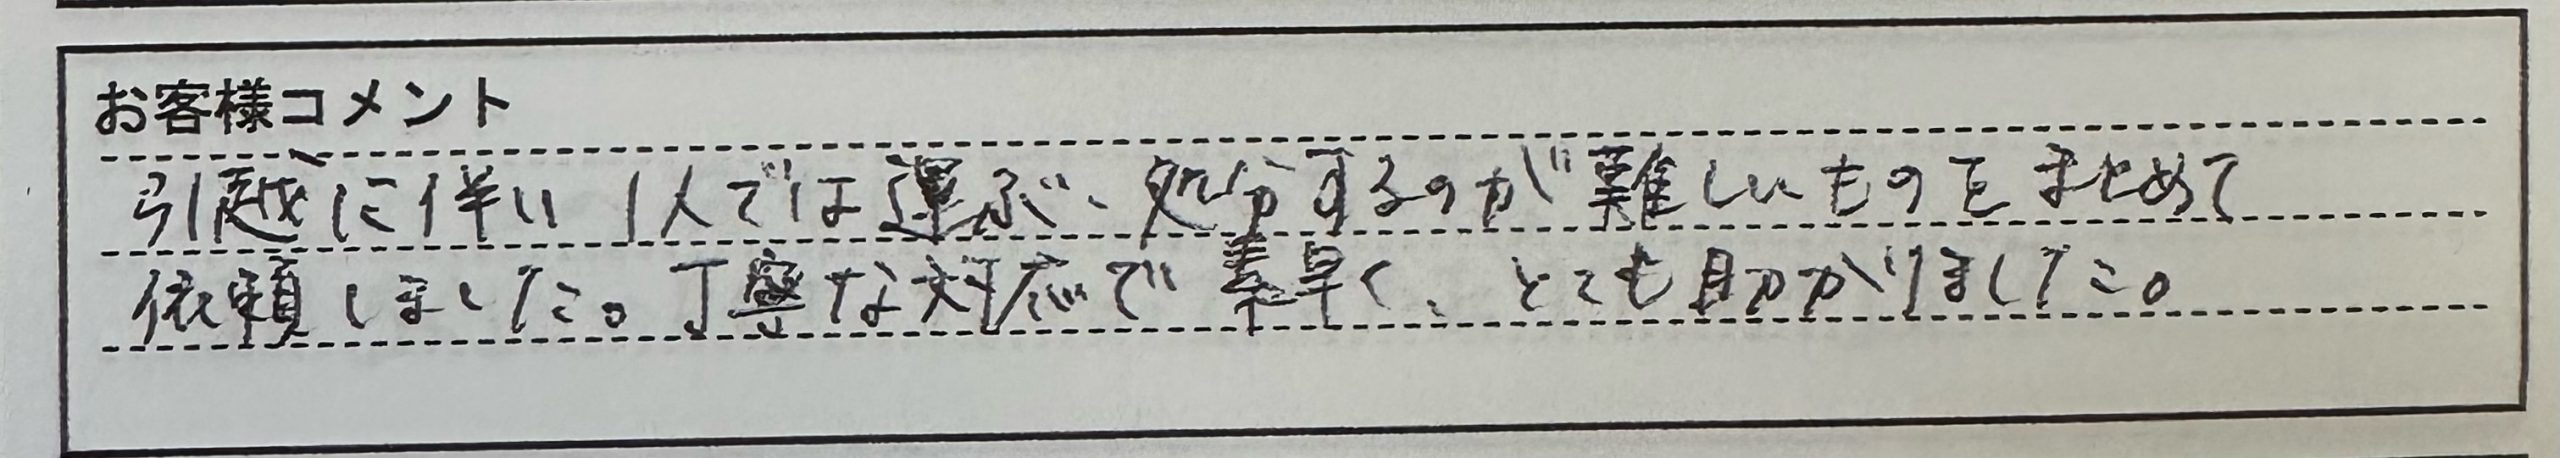 お客様コメント
引越に伴い1人では運ぶ、処分するのが難しいものをまとめて
依頼しました。丁寧な対応で素早く、とても助かりました。